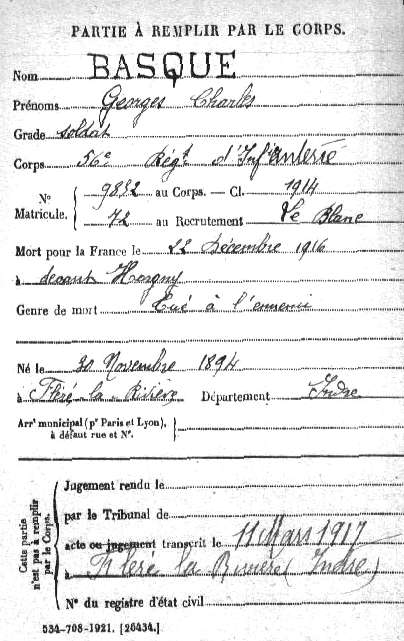 PARTIE À REMPLIR PAR LE CORPS.
Nom BASQUE
Prénoms Georges Charles
Grade soldat
Corps 56e Régt d'Infanterie
Nº Matricule. 9852 au Corps. — Cl. 1914
72 au Recrutement Le Blanc
Mort pour la France le 22 Décembre 1916
à devant
Genre de mort Tué à l'ennemi
Né le 30 Novembre 1894
à Fléré la Rivière Département Indre
Arrt municipal (pr Paris et Lyon), à défaut rue et Nº.
Cette partie n'est pas à remplir par le Corps.
Jugement rendu le
par le Tribunal de
acte ou jugement transcrit le 11 Mars 1917
à Fléré la Rivière (Indre)
Nº du registre d'état civil
534-708-1921. [26434.]